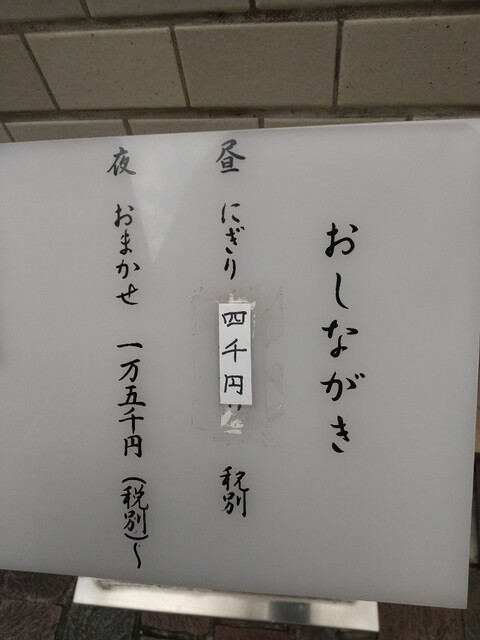 おしながき
昼 にぎり 四千円 税別
夜 おまかせ 一万五千円 (税別)~